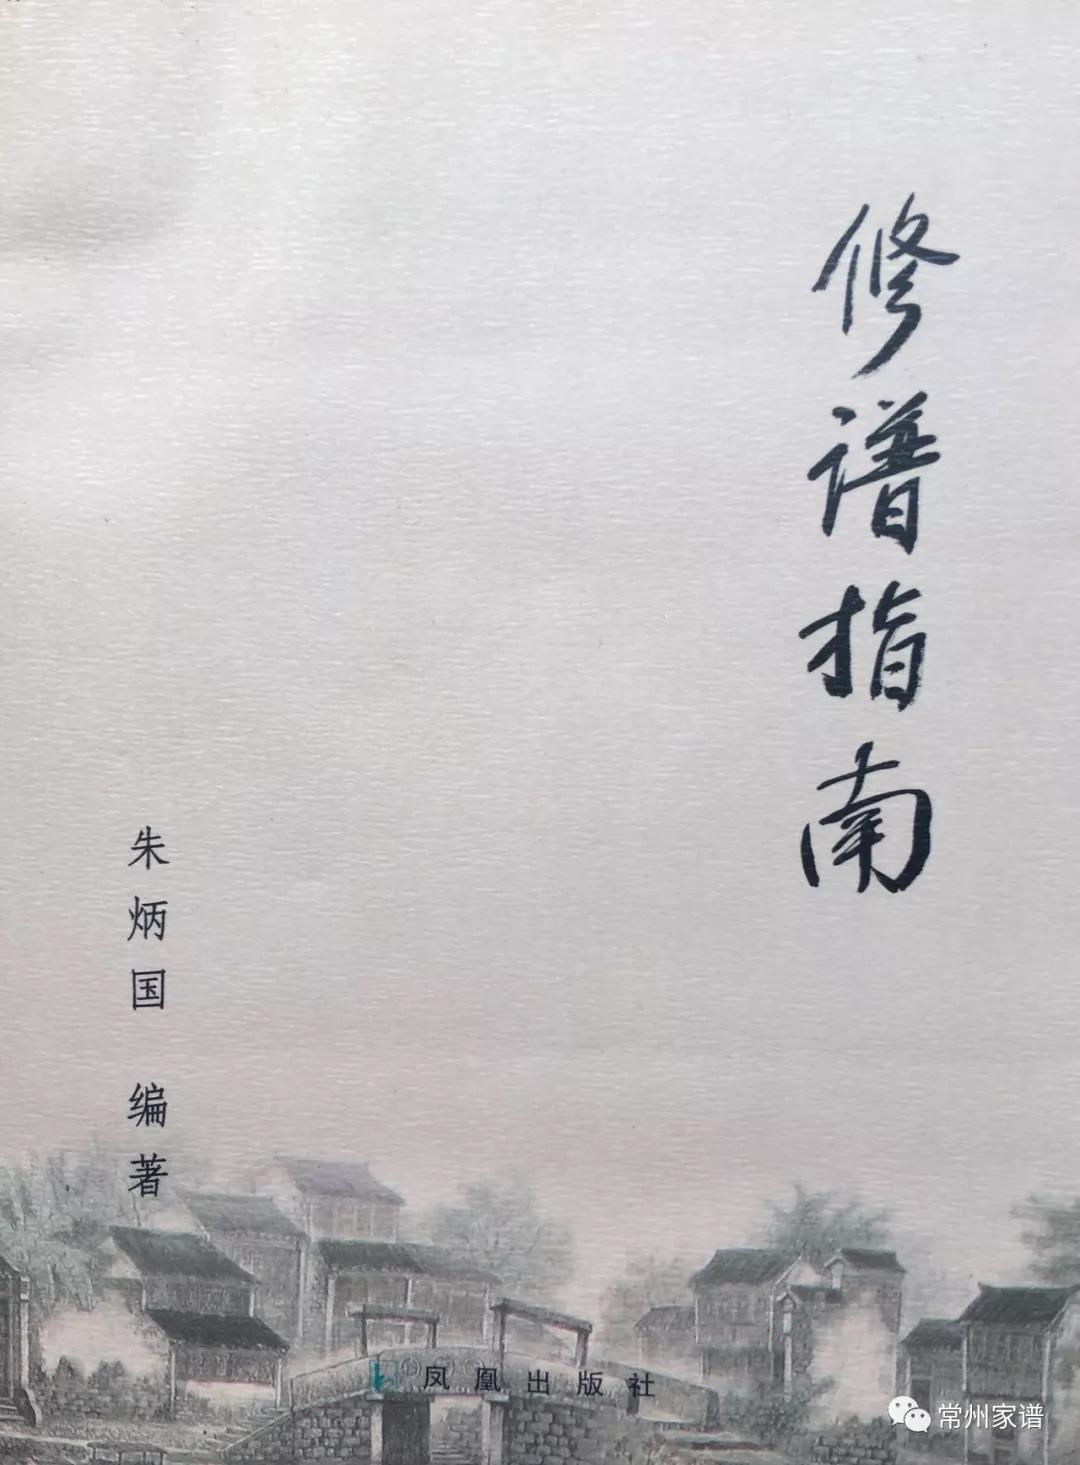 修谱指南
朱炳国 编著
凤凰出版社
常州家谱